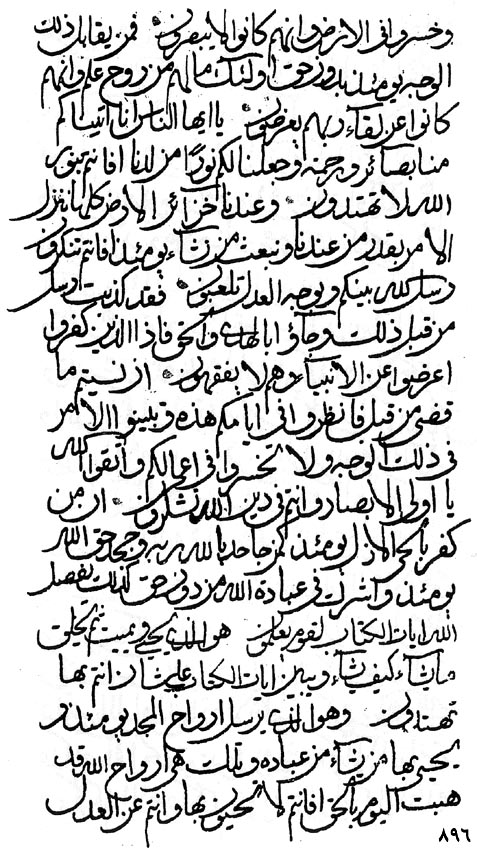 وخسروا فی الارض وانهم كانوا لا يبصرون فمن يقابل ذلك
الوجه يومئذ بدون حق اولئك ما لهم من روح علم وانهم
كانوا عن لقاء ربهم يعرضون يا ايها الناس انا اتيناكم
منا بصائر ورحمة وجعلنا لكم نورا من لدنا افانتم بنور
الله لا تهتدون وعندنا خزائن الارض كلها ننزل
الامر بقدر من عندنا ونبعث من نشاء يومئذ افانتم تنكرون
رسل الله بينكم وبوجه العدل تلعبون فقد كذبت رسل
من قبل ذلك وجاؤا بالهدى والحق فاذا الذين كفروا
اعرضوا عن الانبياء وهم لا يفقهون ان نسيتم ما
قضى من قبل فانظروا فی ايامكم هذه وتبينوا الامر
فی ذلك الوجه ولا تخسروا فی اعمالكم واتقوا الله
يا اولی الابصار وانتم فی دين الله تشكرون ان من
كفر بالحق الاول يومئذ كمن جاحد بالله ربه وجحد حق الله
يومئذ واشرك فی عبادة الله من دون حق كذلك يفصل
الله ايات الكتاب لقوم يعلمون هو الذی يحيی ويميت ثم يخلق
ما يشاء كيف يشاء ويبين ايات الكتاب ان انتم بها
تهتدون وهو الذی يرسل ارواح المجد يومئذ
يحيی بها من يشاء من عباده وتلك هی ارواح الله قد
هبت اليوم بالحق افانتم لا تحيون بها وانتم عن العدل
٨٩٦